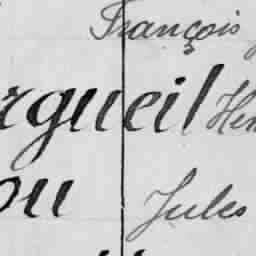 François
rgueil Hen
ou Jules